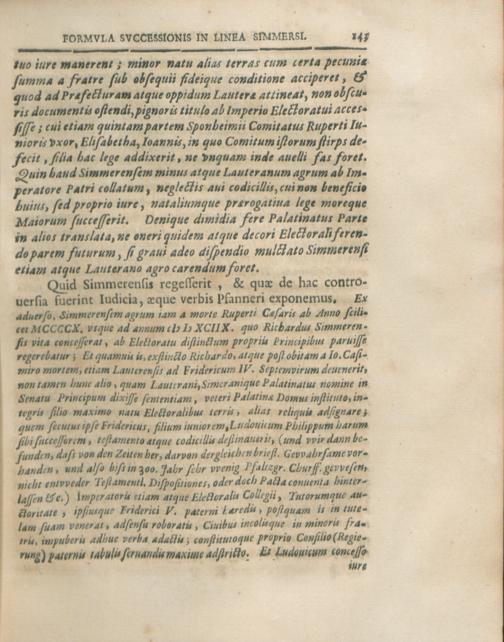 FORMVLA SVCCESSIONIS IN LINEA SIMMERSI. 143
tuo iure manerent; minor natu alias terras cum certa pecuniæ
summa a fratre sub obsequii fideique conditione acciperet, &
quod ad Præfecturam atque oppidum Lauteræ attineat, non obscu-
ris documentis ostendi, pignoris titulo ab Imperio Electoratui acces-
sisse; cui etiam quintam partem Sponheimii Comitatus Ruperti Iu-
nioris vxor, Elisabetha, Ioannis, in quo Comitum istorum stirps de-
fecit, filia hac lege addixerit, ne vnquam inde auelli fas foret.
Quin haud Simmerensem minus atque Lauteranum agrum ab Im-
peratore Patri collatum, neglectis aui codicillis, cui non beneficio
huius, sed proprio iure, nataliumque prærogatiua lege moreque
Maiorum successerit. Denique dimidia fere Palatinatus Parte
in alios translata, ne oneri quidem atque decori Electorali feren-
do parem futurum, si graui adeo dispendio mulctato Simmerensi
etiam atque Lauterano agro carendum foret.
Quid Simmerensis regesserit, & quæ de hac contro-
uersia fuerint Iudicia, æque verbis Pfanneri exponemus. Ex
aduerso, Simmerensem agrum iam a morte Ruperti Cæsaris ab Anno scili-
cet MCCCCX. vsque ad annum cIↃ IↃ XCIIX. quo Richardus Simmeren-
sis vita concesserat, ab Electoratu distinctum propriis Principibus paruisse
regerebatur; Et quamuis is, exstincto Richardo, atque post obitum a Io. Casi-
miro mortem, etiam Lauterensis ad Fridericum IV. Septemvirum deuenerit,
non tamen hunc alio, quam Lauterani, Simeranique Palatinatus nomine in
Senatu Principum dixisse sententiam, veteri Palatinæ Domus instituto, in-
tegris filio maximo natu Electoralibus terris, alias reliquis adsignare;
quem secutus ipse Fridericus, filium iuniorem, Ludouicum Philippum harum
sibi successorem, testamento atque codicillis destinauerit, (und vvir dann be-
funden, dass von den Zeiten her, darvon dergleichen briefl. Gevvahrsame vor-
handen, und also biss in 300. Jahr sehr vvenig Pfaltzgr. Churff. gevvesen,
nicht entvveder Testamentl. Dispositiones, oder doch Pacta conuenta hinter-
lassen &c.) Imperatoris etiam atque Electoralis Collegii, Tutorumque au-
ctoritate, ipsiusque Friderici V. paterni hæredis, postquam is in tute-
lam suam venerat, adsensu roboratis, Ciuibus incolisque in minoris fra-
tris, impuberis adhuc verba adactis; constitutoque proprio Consilio (Regie-
rung) paternis tabulis seruandis maxime adstricto. Et Ludouicum concesso
iure